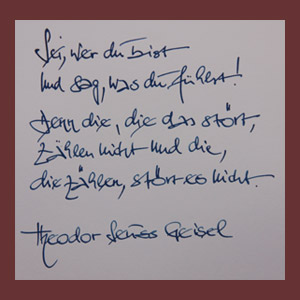 Sei, wer du bist
und sag, was du fühlst!
Denn die, die das stört,
zählen nicht und die,
die zählen, stört es nicht.
Theodor Seuss Geisel